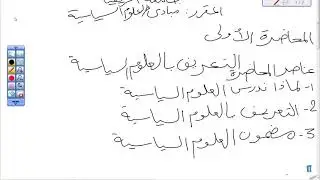 المقرر: مبادئ العلوم السياسية
المحاضرة الأولى
عناصر المحاضرة التعريف بالعلوم السياسية
1- لماذا ندرس العلوم السياسية
2- التعريف بالعلوم السياسية
3- مضمون العلوم السياسية